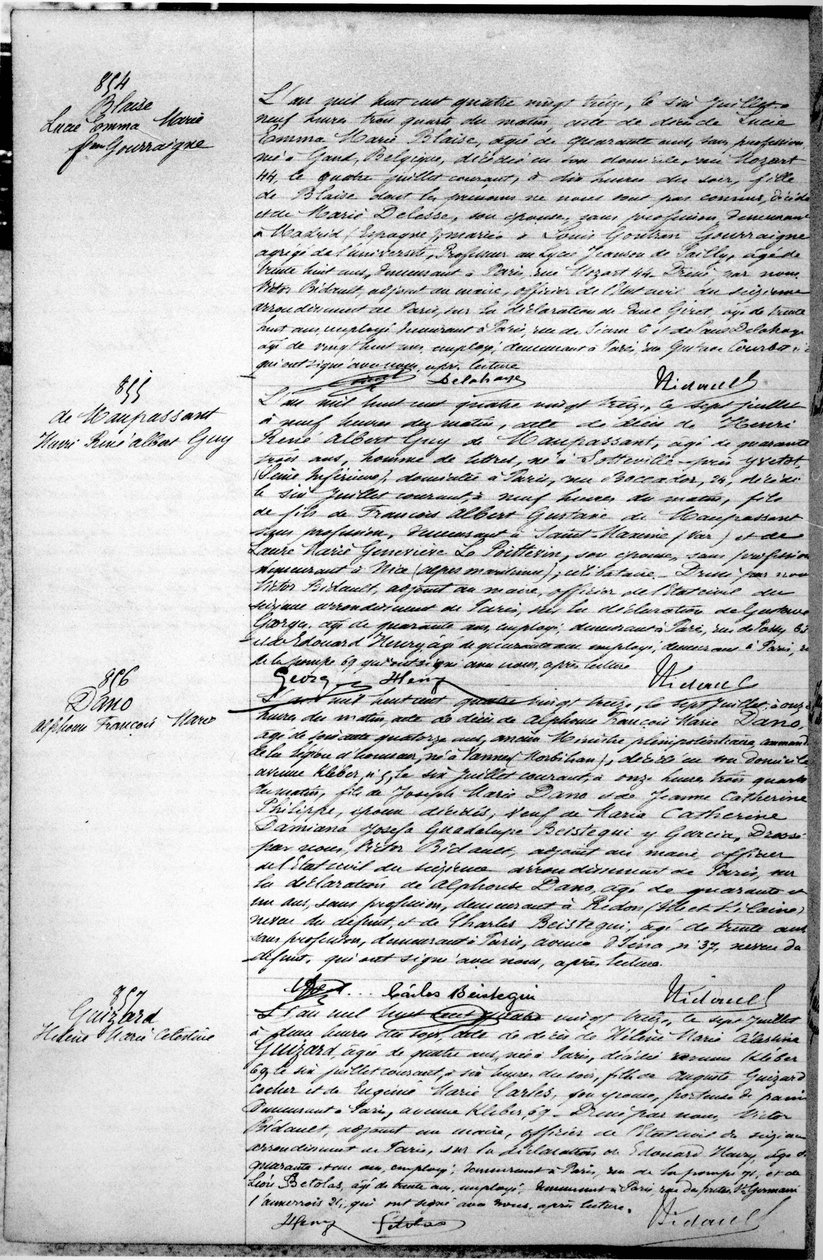 854
Blaise
Lucie Emma Marie
fme Gourraigne
L'an mil huit cent quatre vingt treize, le six Juillet à
neuf heures trois quarts du matin, acte de décès de Lucie
Emma Marie Blaise, âgée de quarante ans, sans profession
née à Gand, Belgique, décédée en son domicile, rue Mozart
44 le quatre juillet courant, à dix heures du soir, fille
de Blaise dont les prénoms ne nous sont pas connus, décédé
et de Marie Delesse, son épouse, sans profession, demeurant
à Madrid (Espagne); mariée à Louis Gontran Gourraigne
agrégé de l'université, Professeur au Lycée Jeanson de Sailly, âgé de
trente huit ans, demeurant à Paris, rue Mozart 44. Dressé par nous
Victor Bidault, adjoint au maire, officier de l'Etat civil du seizième
arrondissement de Paris, sur la déclaration de Paul Giret, âgé de trente
huit ans, employé, demeurant à Paris, rue de Siam 6 et de Louis Delahaye
âgé de vingt huit ans, employé, demeurant à Paris, rue Gustave Courbet
qui ont signé avec nous, après lecture
Giret Delahaye VBidault
855
de Maupassant
Henri René Albert Guy
L'an mil huit cent quatre vingt treize, le sept juillet
à neuf heures du matin, acte de décès de Henri
René Albert Guy de Maupassant, âgé de quarante
trois ans, homme de lettres, né à Sotteville près Yvetot,
(Seine Inférieure); domicilié à Paris, rue Boccador, 24; décédé
le six juillet courant, à neuf heures du matin, fils
de fils de François Albert Gustave de Maupassant
sans profession, demeurant à Sainte Maxime (Var) et de
Laure Marie Geneviève Le Poittevin, son épouse, sans profession
demeurant à Nice (alpes maritimes); célibataire. Dressé par nous
Victor Bidault, adjoint au maire, officier de l'Etat civil du
seizième arrondissement de Paris, sur la déclaration de Gustave
Georgy, âgé de quarante ans, employé; demeurant à Paris, rue de Passy
et de Edouard Henry âgé de quarante ans employé, demeurant à Paris, rue
de la pompe 69 qui ont signé avec nous, après lecture
Georgy Henry VBidault
856
Dano
Alphonse François Marie
L'an mil huit cent quatre vingt treize, le sept juillet, à onze
heures du matin, acte de décès de Alphonse François Marie Dano,
âgé de soixante quatorze ans, ancien Ministre plénipotentiaire, commandeur
de la Légion d'honneur, né à Vannes (Morbihan); décédé en son domicile
avenue Kléber, n° 5, le six juillet courant, à onze heures trois quarts
du matin, fils de Joseph Marie Dano et de Jeanne Catherine
Philippe, époux décédés, Veuf de Maria Catherine
Damiana Josefa Guadelupe Beistegui y Garcia, Dressé
par nous, Victor Bidault, adjoint au maire, officier
de l'Etat civil du seizième arrondissement de Paris, sur
la déclaration de Alphonse Dano, âgé de quarante et
un ans, sans profession, demeurant à Redon (Ille et Vilaine)
neveu du défunt, et de Charles Beistegui, âgé de trente ans
sans profession, demeurant à Paris, avenue d'Iéna, n° 37, neveu du
défunt, qui ont signé avec nous, après lecture.
Carlos Beistegui VBidault
857
Guizard
Hélène Marie Célestine
L'an mil huit cent quatre vingt treize, le sept Juillet
à une heure du soir, acte de décès de Hélène Marie Célestine
Guizard, âgée de quatre ans, née à Paris, décédée avenue Kléber
69, le six juillet courant, à six heures du soir, fille de Auguste Guizard
cocher et de Eugénie Marie Carles, son épouse, porteuse de pain
demeurant à Paris, avenue Kléber, 69. Dressé par nous, Victor
Bidault, adjoint au maire, officier de l'Etat civil du seizième
arrondissement de Paris, sur la déclaration de Edouard Henry, âgé de
quarante et un ans, employé; demeurant à Paris, rue de la pompe, et de
Léon Betolas, âgé de trente ans, employé; demeurant à Paris, rue des Prêtres St Germain
l'auxerrois 21, qui ont signé avec nous, après lecture.
Henry Bétolas VBidault